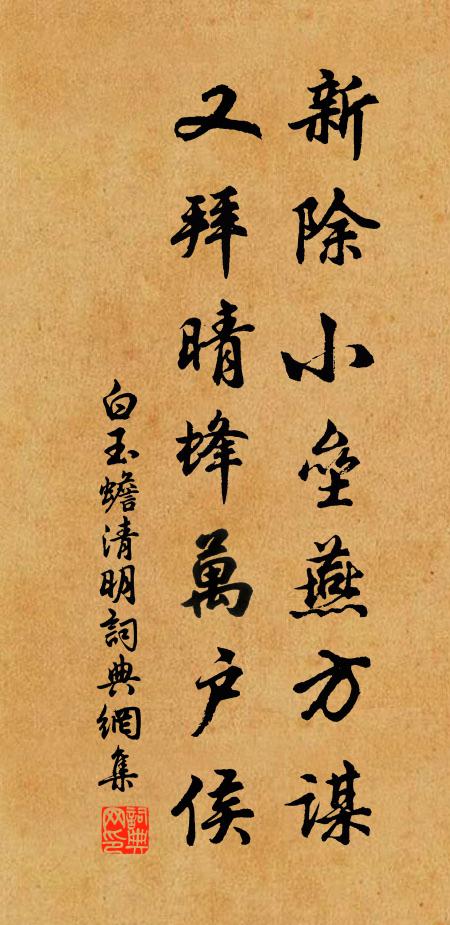 新除小垒燕方謀
又拜晴蜂萬户侯
白玉蟾清明詞典網集
詞典网印